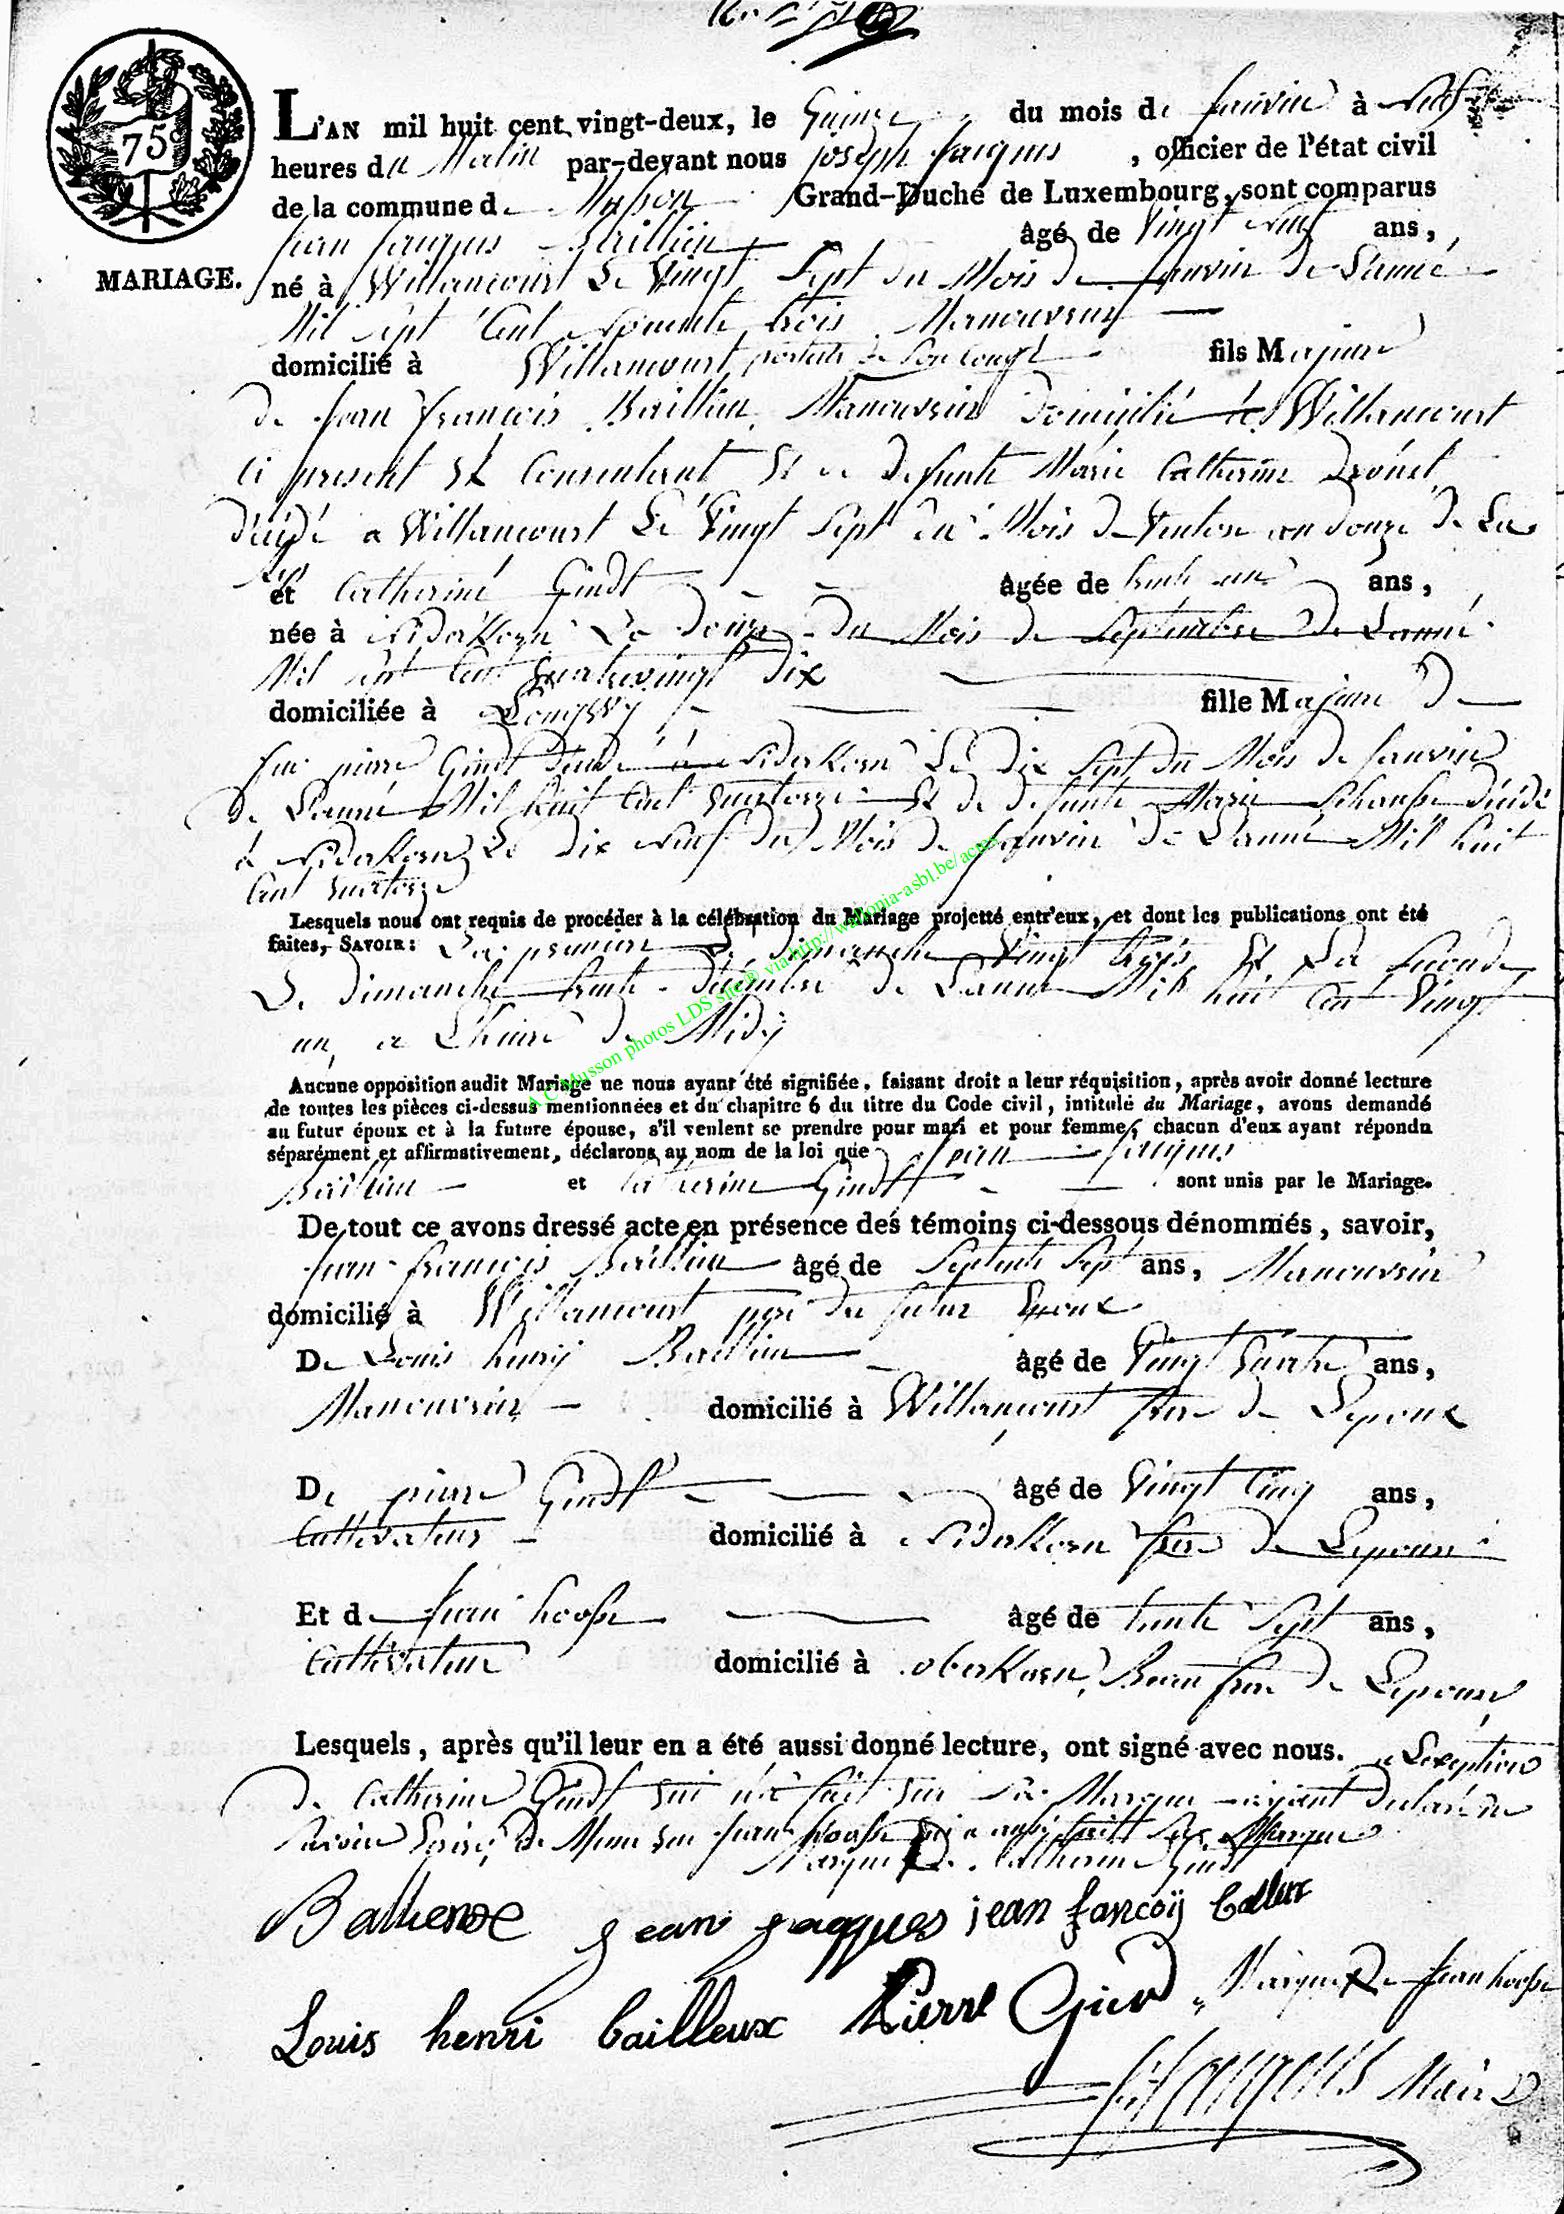 75
MARIAGE.
L'AN mil huit cent vingt-deux, le Quinze du mois de janvier à neuf
heures du Matin par-devant nous joseph jacques, officier de l'état civil
de la commune de Musson Grand-Duché de Luxembourg, sont comparus
jean jacques Baillieu âgé de Vingt neuf ans,
né à Willancourt Le Vingt Sept du Mois de janvier de L'année
Mil Sept Cent nonante trois Manouvrier
domicilié à Willancourt fils Majeur
de jean françois Baillieu Manouvrier domicilié à Willancourt
ci present Et Consentant Et de defunte Marie Catherine
décédé a Willancourt Le Vingt Sept du Mois de Ventose an douze de La
et Catherine Gindt âgée de trente un ans,
née à Niderkorn Le douze du Mois de Septembre de L'année
Mil Sept Cent quatrevingt dix
domiciliée à Longwy fille Majeure de
feu pierre Gindt décédé à Niderkorn Le dix Sept du Mois de janvier
de L'année Mil huit Cent quatorze Et de defunte Marie décédé
à Niderkorn Le dix neuf du Mois de janvier de L'année Mil huit
Cent quatorze
Lesquels nous ont requis de procéder à la célébration du Mariage projetté entr'eux, et dont les publications ont été
faites, SAVOIR: La premiere Le dimanche Vingt trois Et La Seconde
Le dimanche trente décembre de L'année Mil huit Cent Vingt
un, a L'heure de Midy
Aucune opposition audit Mariage ne nous ayant été signifiée, faisant droit a leur réquisition, après avoir donné lecture
de toutes les pièces ci-dessus mentionnées et du chapitre 6 du titre du Code civil, intitulé du Mariage, avons demandé
au futur époux et à la future épouse, s'il veulent se prendre pour mari et pour femme, chacun d'eux ayant répondu
séparément et affirmativement, déclarons au nom de la loi que jean jacques
Baillieu et Catherine Gindt sont unis par le Mariage.
De tout ce avons dressé acte en présence des témoins ci-dessous dénommés, savoir,
jean françois Baillieu âgé de Septente Sept ans, Manouvrier
domicilié à Willancourt pere du futur Epoux
De Louis henry Baillieu âgé de Vingt quatre ans,
Manouvrier domicilié à Willancourt frere de Lepoux
De pierre Gindt âgé de Vingt Cinq ans,
Cultivateur domicilié à Niderkorn frere de Lepouse
Et de jean hoosse âgé de trente Sept ans,
Cultivateur domicilié à oberkorn, Beau frere de Lepouse
Lesquels, après qu'il leur en a été aussi donné lecture, ont signé avec nous. a Lexeption
de Catherine Gindt qui n'a fait que Sa Marque ayant declaré ne
Savoir Ecrire, de Meme que jean hoosse qui a aussi fait Sa Marque
Marque de Catherine Gindt
Bailleux jean jacques jean fancoÿ bailleux
Louis henri bailleux Pierre Gied Marque de jean hoosse
jacques Maire
A.C. Musson photos LDS site® via http://wallonia-asbl.be/actes